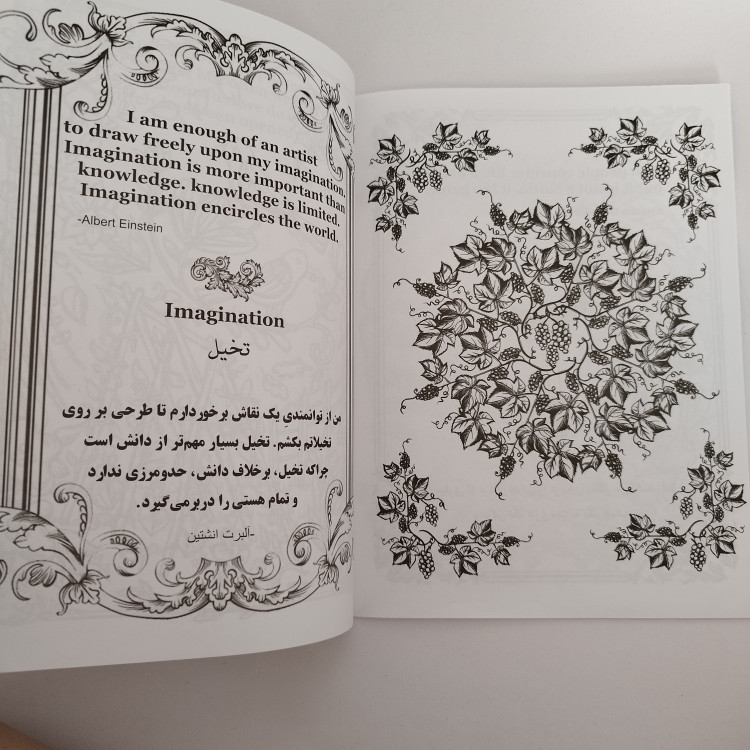 I am enough of an artist
to draw freely upon my imagination.
Imagination is more important than
knowledge. knowledge is limited.
Imagination encircles the world.
-Albert Einstein
Imagination
تخیل
من از توانمندیِ یک نقاش برخوردارم تا طرحی بر روی
تخیلاتم بکشم. تخیل بسیار مهم‌تر از دانش است
چراکه تخیل، برخلاف دانش، حدومرزی ندارد
و تمام هستی را دربرمی‌گیرد.
-آلبرت انشتین